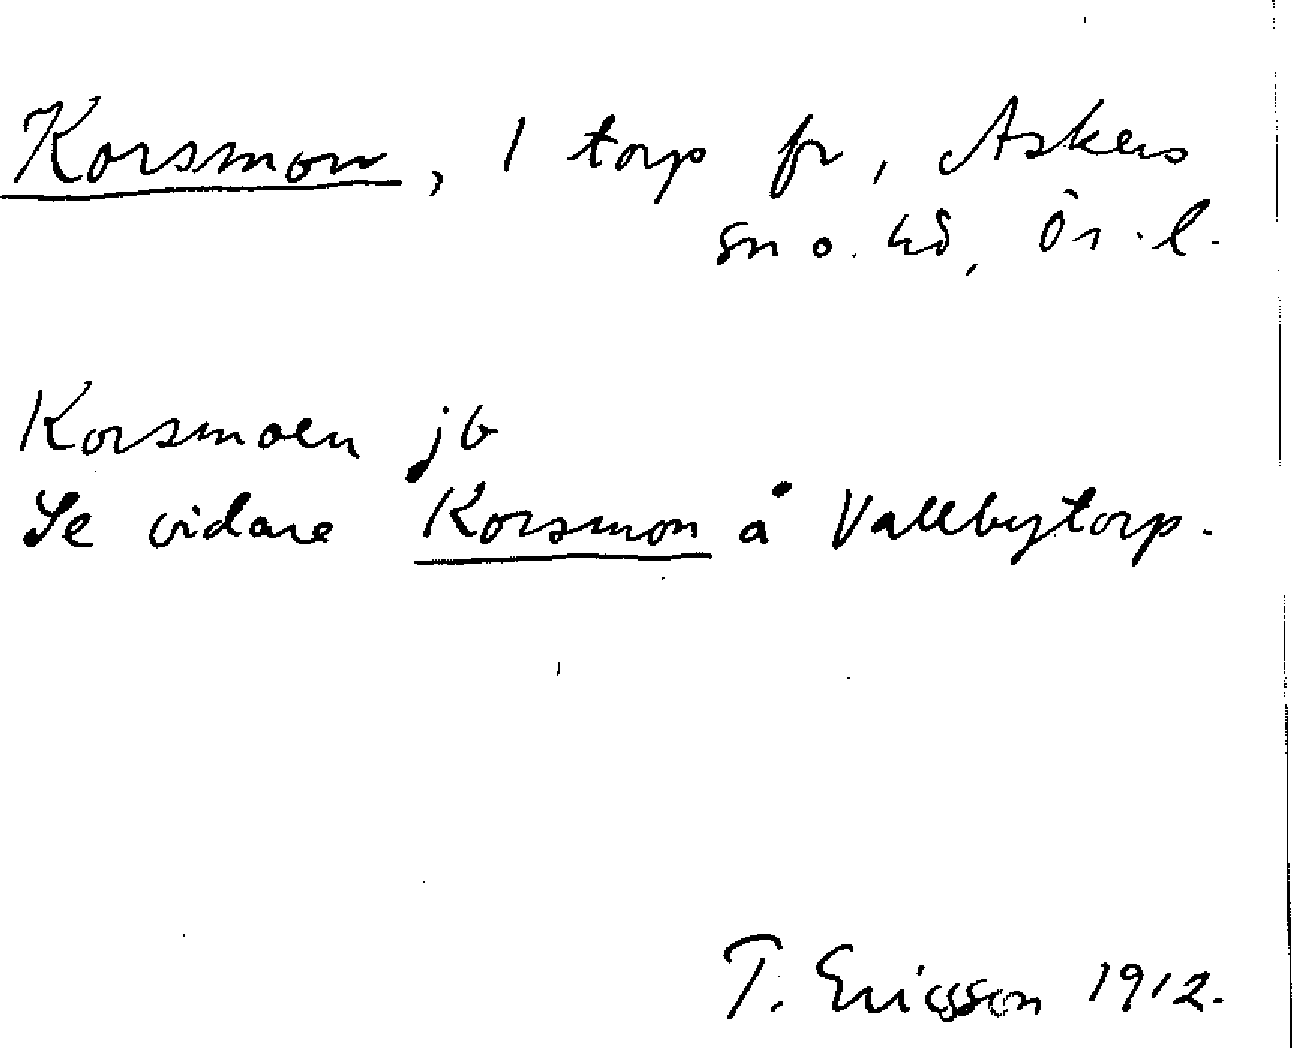 Korsmon, 1 torp fr, Askers
sn o. hd, Ör.l.
Korsmoen jb
Se vidare Korsmon å Vallbytorp.
T. Ericsson 1912.